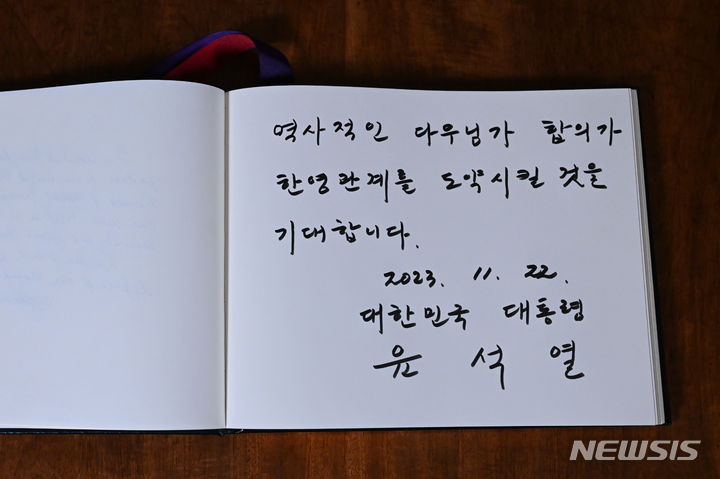 역사적인 다우닝가 합의가
한영관계를 도약시킬 것을
기대합니다.
2023. 11. 22.
대한민국 대통령
윤 석 열
NEWSIS